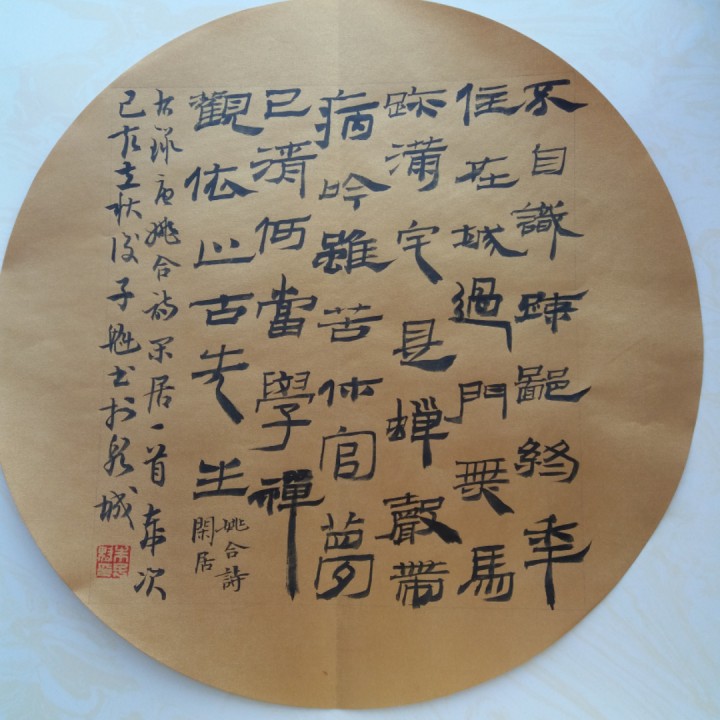 不自識疎鄙終年
住在城過門無馬
跡滿宅是蟬聲帶
病吟雖苦休官夢
已清何當學禪
觀依止古先生
姚合詩
閑居
右録唐姚合詩闲居一首歲次
己亥立秋後子魁书於泉城